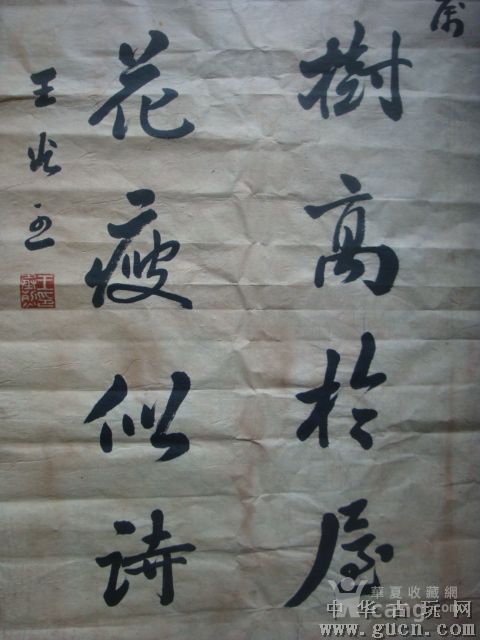 樹高於屋
花瘦似詩
王
華夏收藏網
cang.com
中华古玩网
www.gucn.com